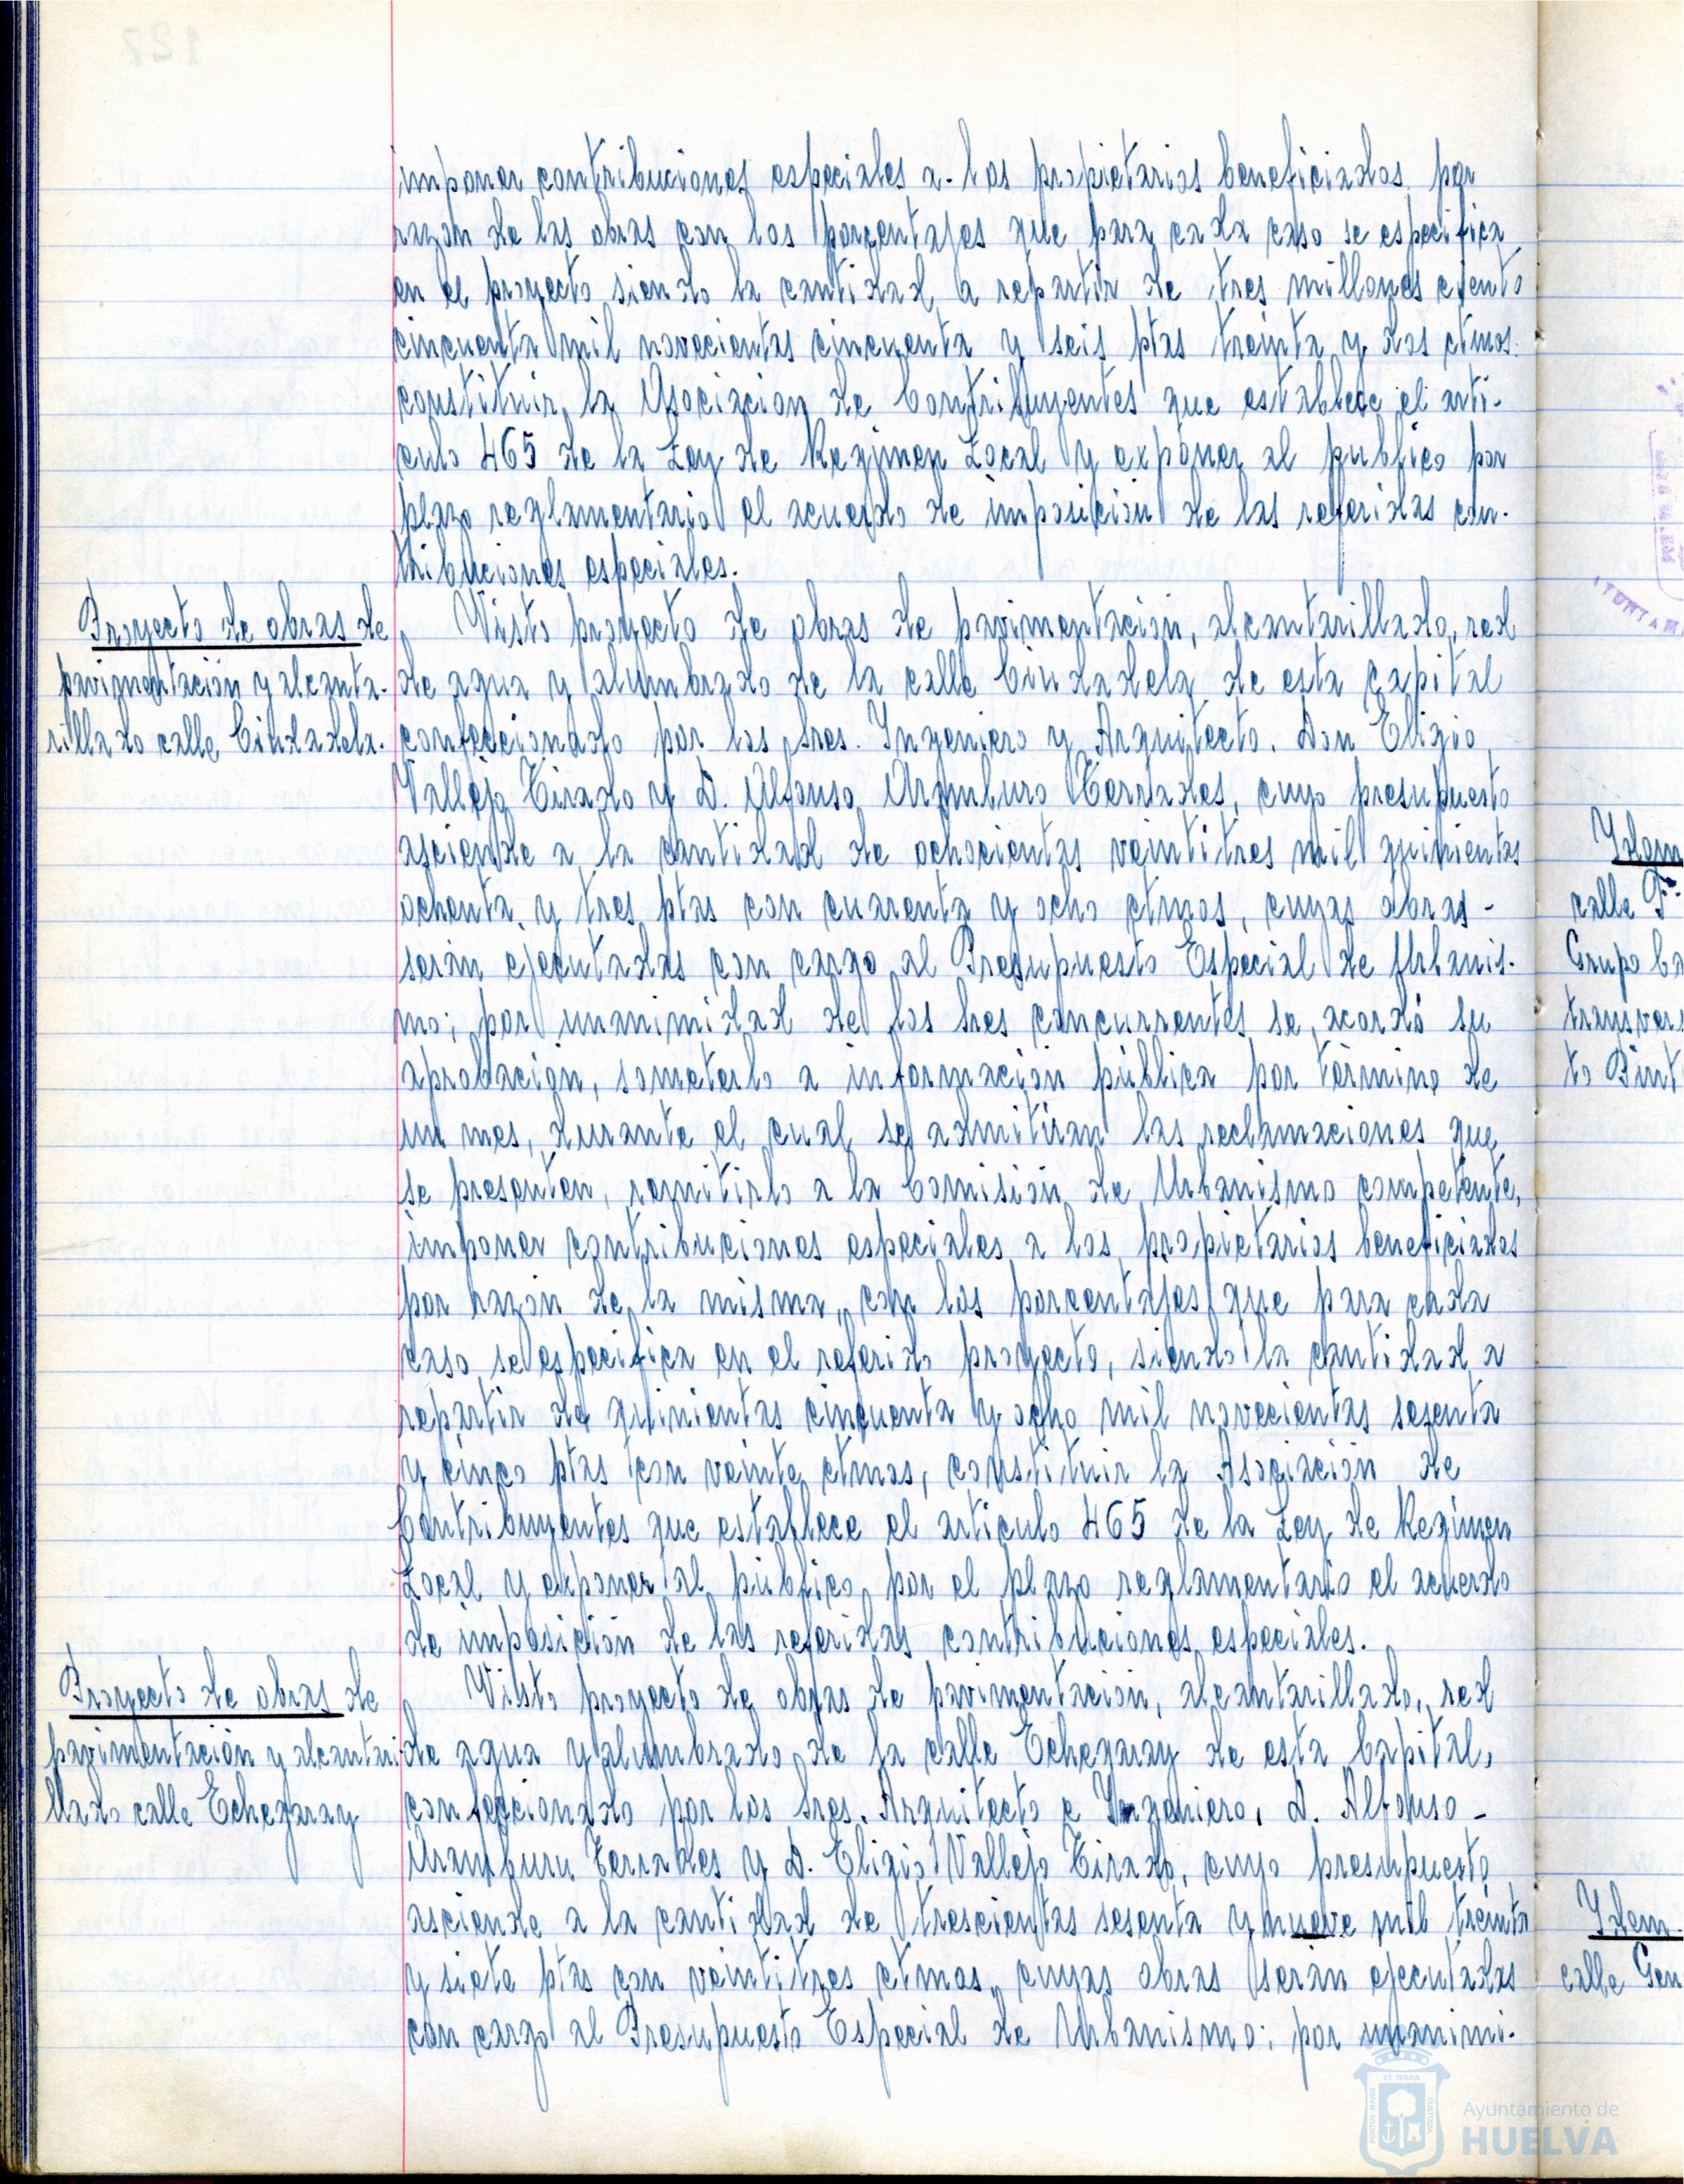 imponer contribuciones especiales a los propietarios beneficiados por
razon de las obras con los porcentajes que para cada caso se especifica
en el proyecto siendo la cantidad a repartir de tres millones ciento
cincuenta mil novecientas cincuenta y seis ptas treinta y dos ctmos.
constituir la Asociacion de Contribuyentes que establece el arti-
culo 465 de la Ley de Regimen Local y exponer al publico por
plazo reglamentario el acuerdo de imposición de las referidas con-
tribuciones especiales.
Proyecto de obras de
pavimentación y alcanta-
rillado calle Ciudadela.
Visto proyecto de obras de pavimentación, alcantarillado, red
de agua y alumbrado de la calle Ciudadela de esta capital
confeccionado por los sres. Ingeniero y Arquitecto. Don Eligio
Vallejo Tirado y D. Alfonso Aramburo Terrades, cuyo presupuesto
asciende a la cantidad de ochocientas veintitres mil quinientas
ochenta y tres ptas con cuarenta y ocho ctmos, cuyas obras -
serán ejecutadas con cargo al Presupuesto Especial de Urbanis-
mo; por unanimidad de los sres concurrentes se acordó su
aprobación, someterlo a información pública por término de
un mes, durante el cual se admitirán las reclamaciones que
se presenten, remitirlo a la Comisión de Urbanismo competente,
imponer contribuciones especiales a los propietarios beneficiados
por razón de la misma, con los porcentajes que para cada
caso se especifica en el referido proyecto, siendo la cantidad a
repartir de quinientas cincuenta y ocho mil novecientas sesenta
y cinco ptas con veinte ctmos, constituir la Asociación de
Contribuyentes que establece el articulo 465 de la Ley de Regimen
Local y exponer al público por el plazo reglamentario el acuerdo
de imposición de las referidas contribuciones especiales.
Proyecto de obras de
pavimentación y alcantari
llado calle Echegaray
Visto proyecto de obras de pavimentación, alcantarillado, red
de agua y alumbrado de la calle Echegaray de esta Capital,
confeccionado por los sres. Arquitecto e Ingeniero, D. Alfonso -
Aramburu Terrades y D. Eligio Vallejo Tirado, cuyo presupuesto
asciende a la cantidad de trescientas sesenta y nueve mil treinta
y siete ptas con veintitres ctmos, cuyas obras serán ejecutadas
con cargo al Presupuesto Especial de Urbanismo; por unanimi-
Idem
calle
Grupo
Idem
calle
Ayuntamiento de
HUELVA